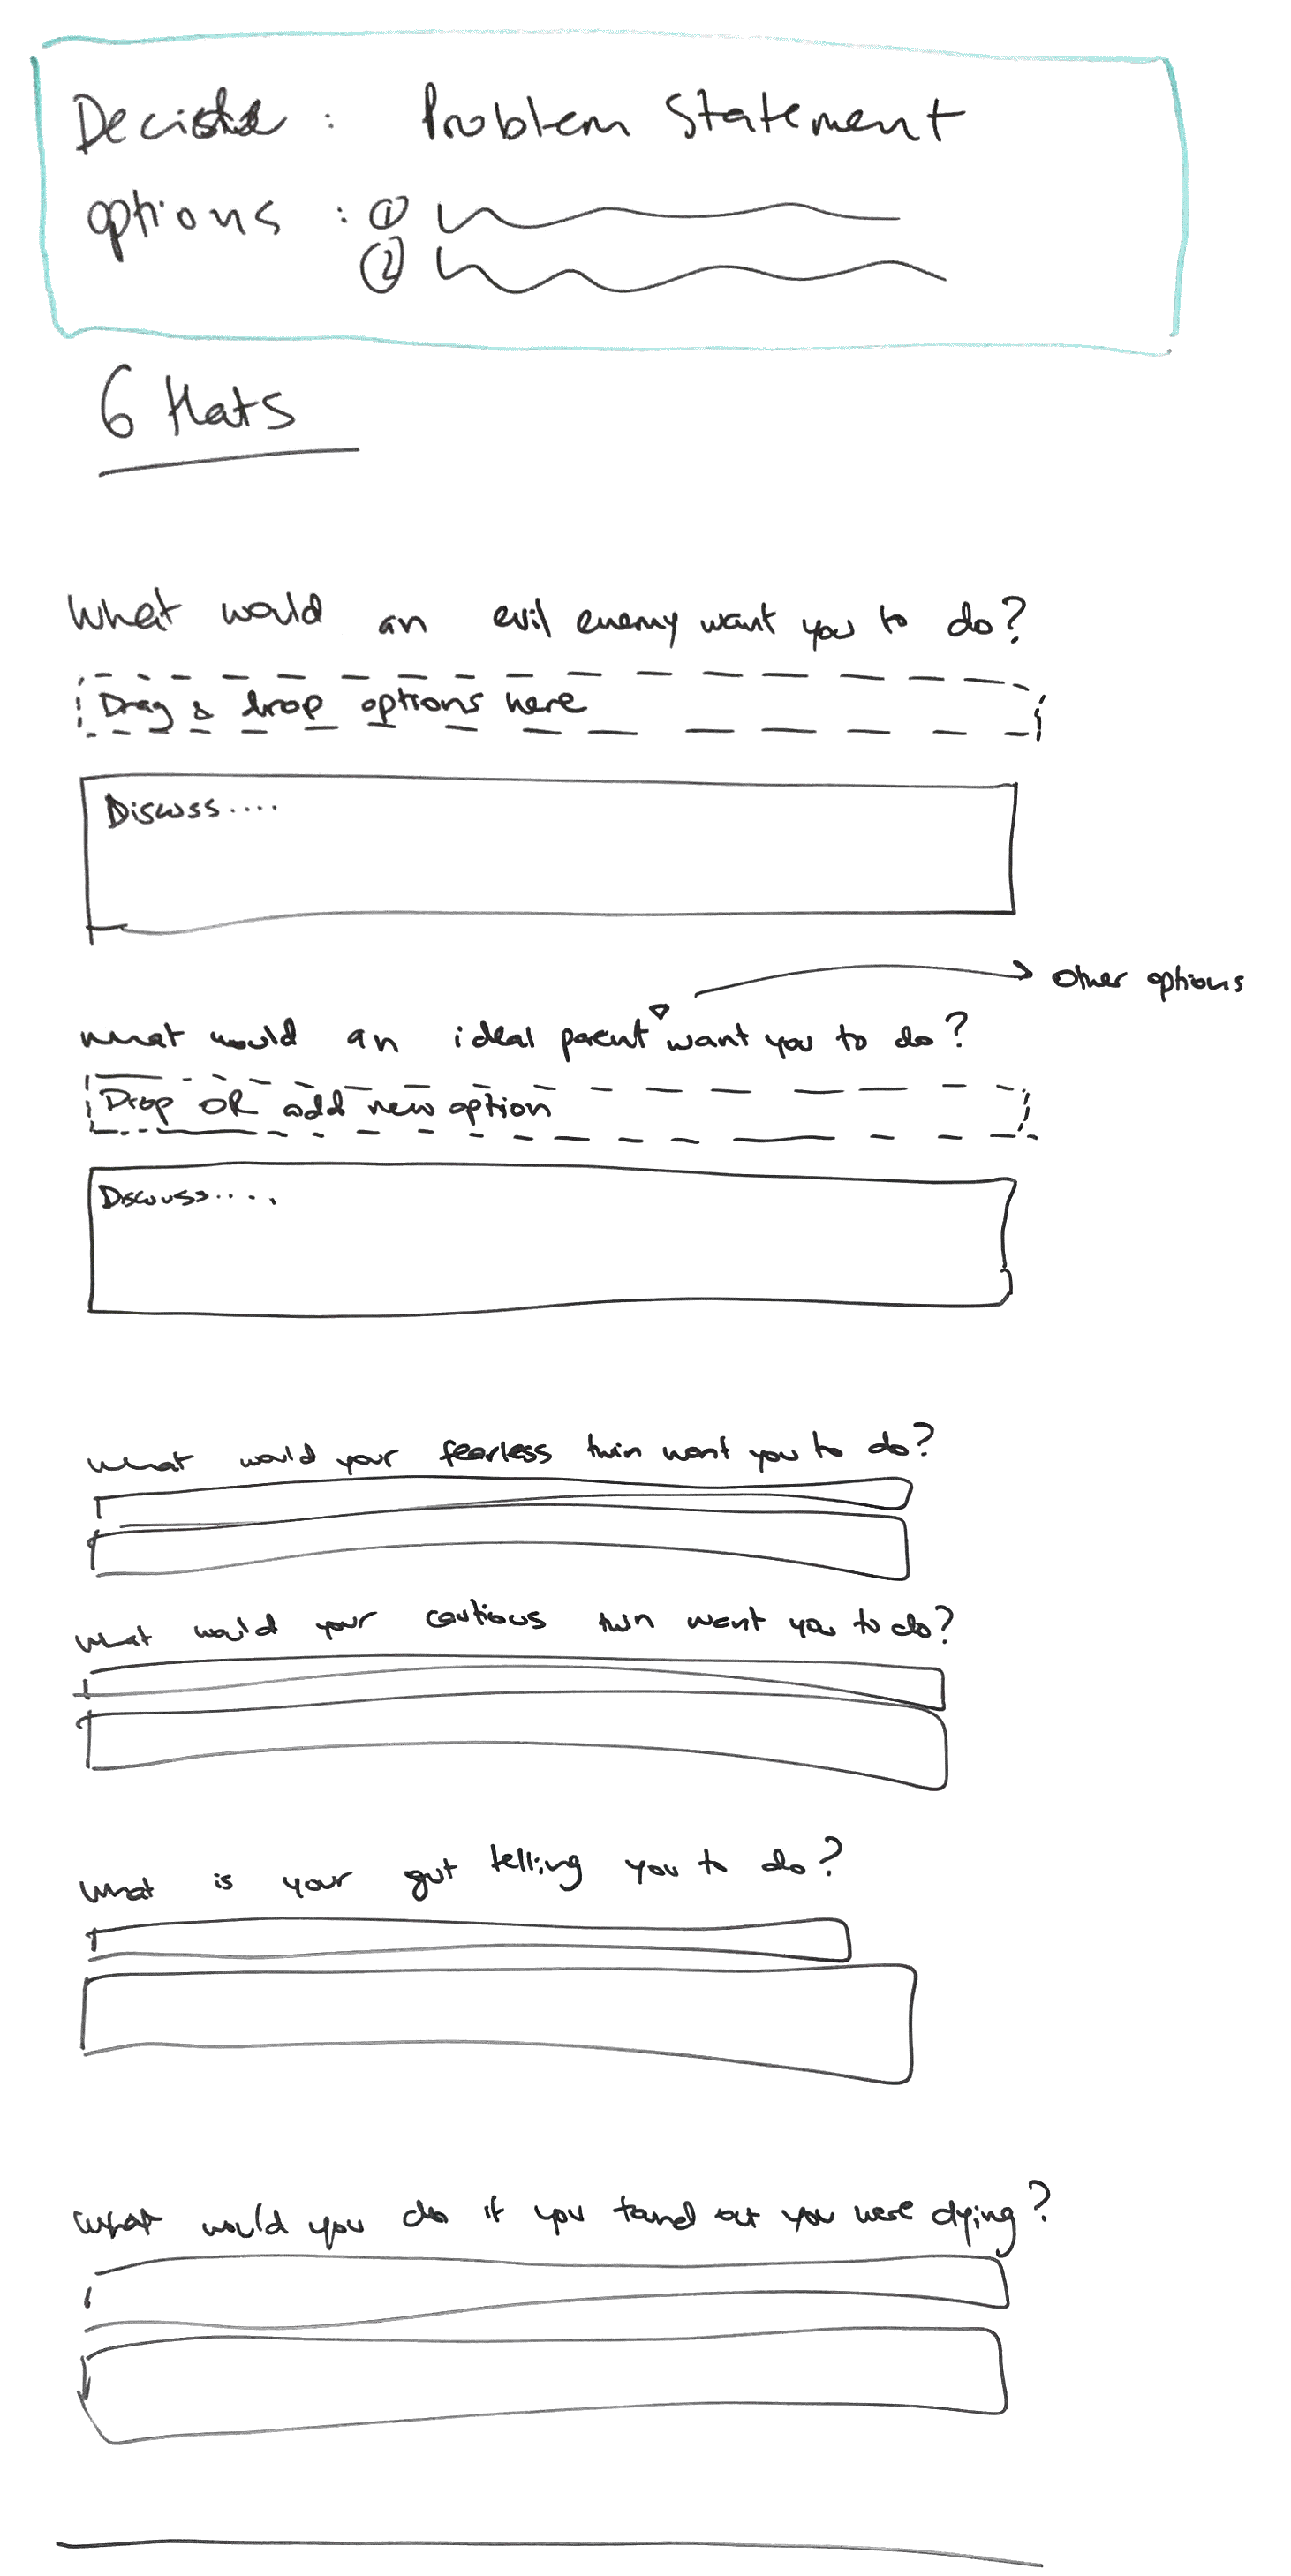 Decision : Problem Statement
options : ①
②
6 Hats
What would an evil enemy want you to do?
Drag & drop options here
Discuss....
other options
What would an ideal parent want you to do?
Drop OR add new option
Discuss....
What would your fearless twin want you to do?
What would your cautious twin want you to do?
What is your gut telling you to do?
What would you do if you found out you were dying?